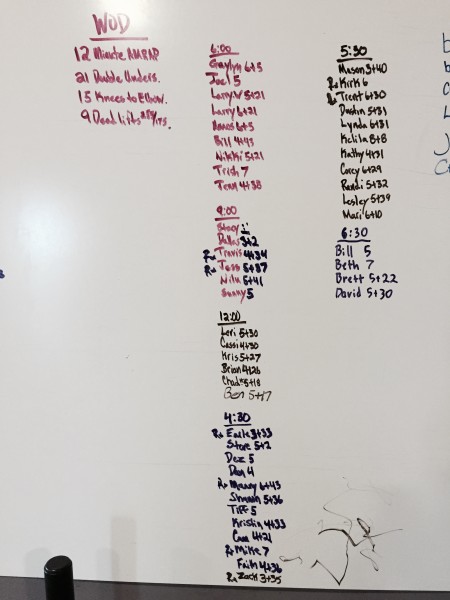 WOD
12 Minute AMRAP
21 Double Unders.
15 Knees to Elbow.
9 Dead lifts
6:00
Gaylyn 6+5
Joel 5
Larry W 5+21
Larry 6+21
6+5
Bill 4+43
Nikki 5+21
Trish 7
Jenn 4+38
9:00
Stacy
Dallas 3+2
Rx Travis 4+34
Rx Jess 5+37
Nila 5+41
Sunny 5
12:00
Lori 5+30
Cassi 4+30
Kris 5+27
Brian 4+26
Chad 5+18
Ben 5+17
4:30
Rx Earle 3+33
Steve 5+2
Dez 5
Dan 4
Rx Manny 6+43
Shawn 5+36
Tiff 5
Kristin 4+33
Cam 4+21
Rx Mike 7
Faith 4+36
Rx Zack 3+35
5:30
Mason 3+40
Rx Kirk 6
Rx Trent 6+30
Dustin 5+31
Lynda 6+31
Kalila 8+8
Kathy 4+31
Corey 6+29
Randi 5+32
Lesley 5+39
Mari 6+10
6:30
Bill 5
Beth 7
Brett 5+22
David 5+30